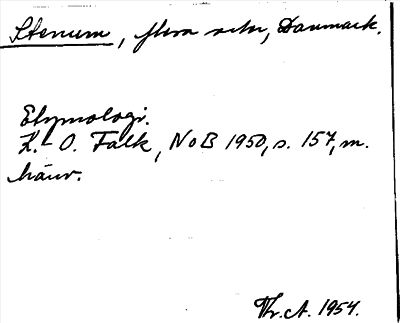 Stenum, flera orter, Danmark.
Etymologi.
K.-O. Falk, NoB 1950, s. 157, m.
hänv.
1954.